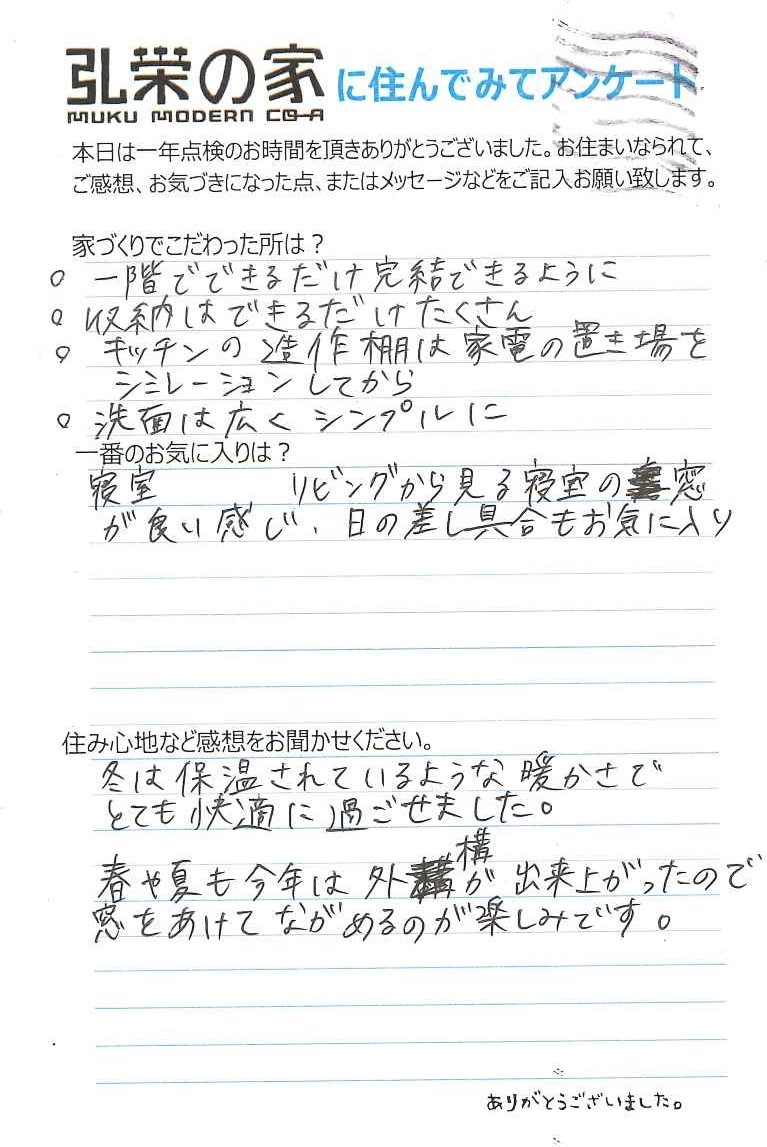 弘栄の家に住んでみてアンケート
MUKU MODERN CO-A
本日は一年点検のお時間を頂きありがとうございました。お住まいなられて、
ご感想、お気づきになった点、またはメッセージなどをご記入お願い致します。
家づくりでこだわった所は？
○ 一階でできるだけ完結できるように
○ 収納はできるだけたくさん
○ キッチンの造作棚は家電の置き場を
シミレーションしてから
○ 洗面は広くシンプルに
一番のお気に入りは？
寝室 リビングから見る寝室の窓
が良い感じ、日の差し具合もお気に入り
住み心地など感想をお聞かせください。
冬は保温されているような暖かさで
とても快適に過ごせました。
春や夏も今年は外構が出来上がったので
窓をあけてながめるのが楽しみです。
ありがとうございました。